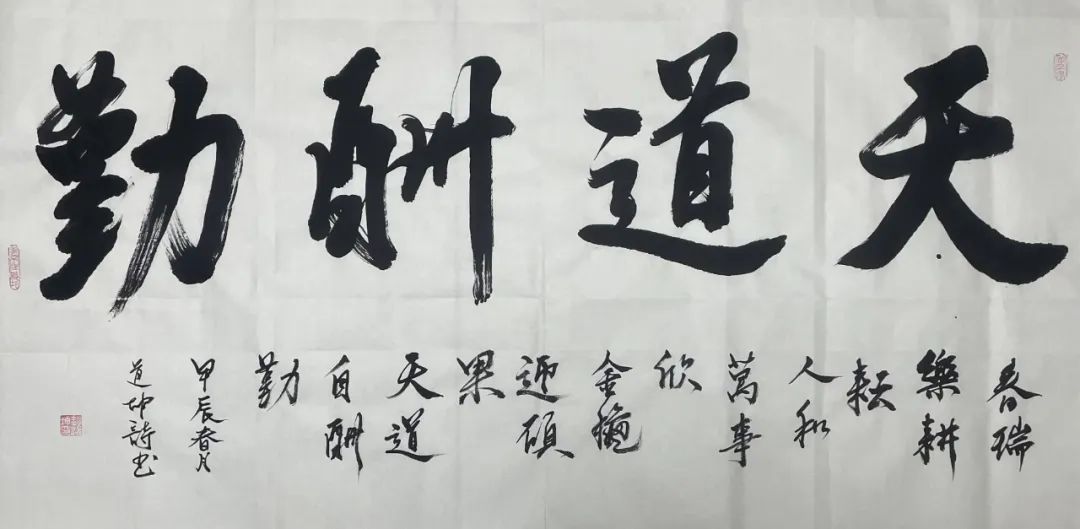 天道酬勤
春瑞
樂耕
耘
人和
萬事
欣
金穐
迎碩
果
天道
自酬
勤
甲辰春月
道詩书